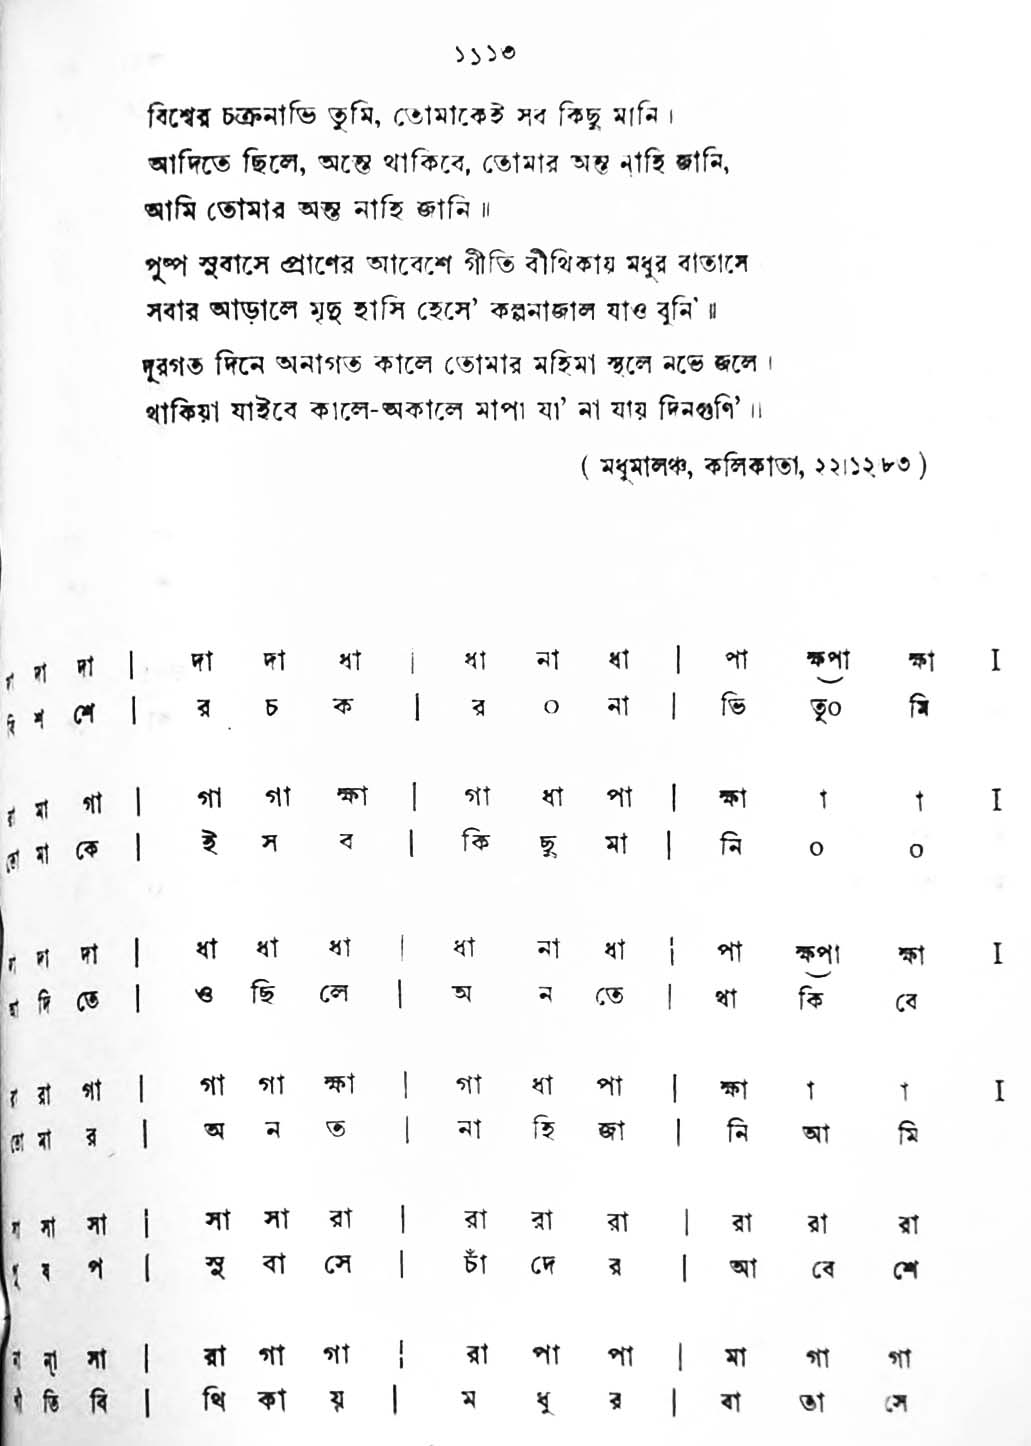 ১১১৩
বিশ্বের চক্রনাভি তুমি, তোমাকেই সব কিছু মানি।
আদিতে ছিলে, অন্তে থাকিবে, তোমার অন্ত নাহি জানি,
আমি তোমার অন্ত নাহি জানি॥
পুষ্প সুবাসে প্রাণের আবেশে গীতি বীথিকায় মধুর বাতাসে
সবার আড়ালে মৃদু হাসি হেসে' কল্পনাজাল যাও বুনি'॥
দূরগত দিনে অনাগত কালে তোমার মহিমা স্থলে নভে জলে।
থাকিয়া যাইবে কালে-অকালে মাপা যা' না যায় দিনগুণি'॥
( মধুমালঞ্চ, কলিকাতা, ২২।১২ ৮৩ )
দা দা | দা দা ধা | ধা না ধা | পা হ্মপা হ্মা I
শ শে | র চ ক | র ০ না | ভি তু০ মি
মা গা | গা গা হ্মা | গা ধা পা | হ্মা া া I
তো মা কে | ই স ব | কি ছু মা | নি ০ ০
দা দা | ধা ধা ধা | ধা না ধা | পা হ্মপা হ্মা I
দি তে | ও ছি লে | অ ন তে | থা কি বে
রা গা | গা গা হ্মা | গা ধা পা | হ্মা া া I
তো মা র | অ ন ত | না হি জা | নি আ মি
সা সা | সা সা রা | রা রা রা | রা রা রা
পু ষ প | সু বা সে | চাঁ দে র | আ বে শে
ন্ সা | রা গা গা | রা পা পা | মা গা গা
তি বি | থি কা য় | ম ধু র | বা তা সে